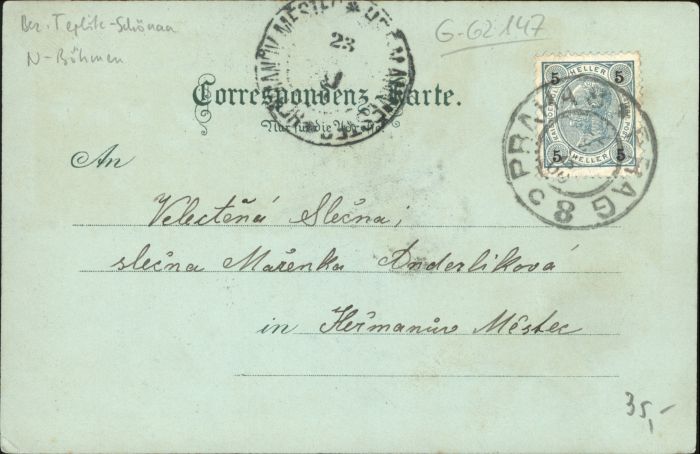 Bez. Teplitz-Schönau
N-Böhmen
G-G2 147
HEŘMANŮV MĚSTEC * HEŘMANMĚSTEC
23
Correspondenz-Karte.
Nur für die Adresse.
5 HELLER 5
5 HELLER 5
PRAHA PRAG
8 C
An
Velectěná Slečna;
slečna Mařenka Anderlíková
in Heřmanův Městec
35,-